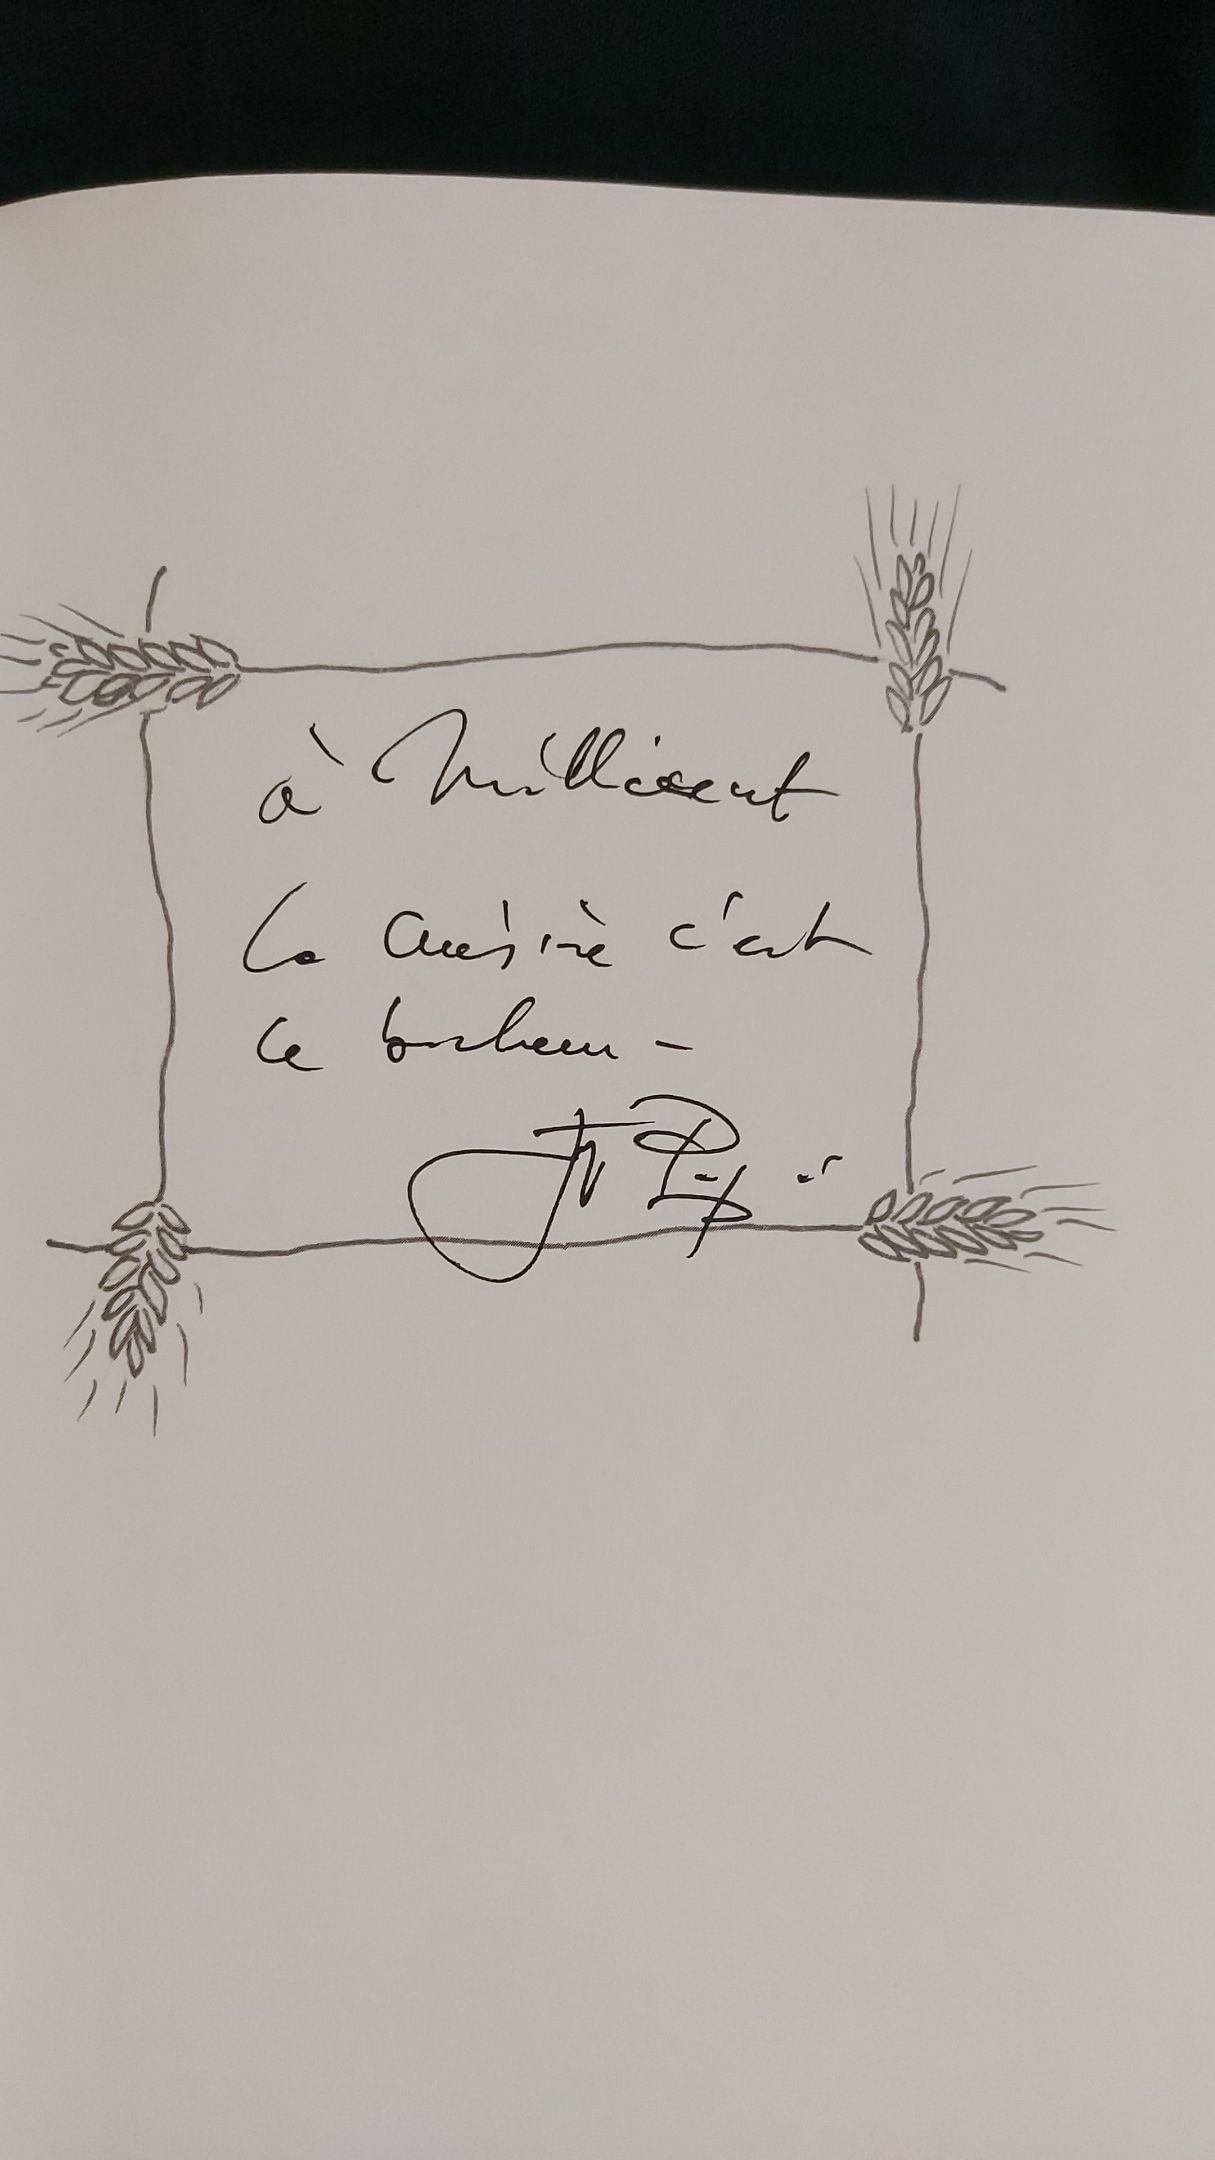 à Millicent
La cuisine c'est
le bonheur -